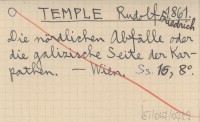 TEMPLE Rudolf 1861.
Friedrich
Die nördlichen Abfälle oder
die galizische Seite der Kar-
pathen. — Wien. Ss. 16, 8°.